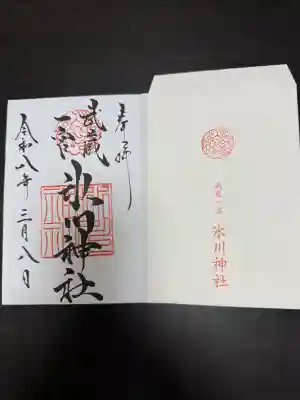 奉拝
武蔵
一宮
氷川神社
令和八年 三月八日
武蔵一宮
氷川神社